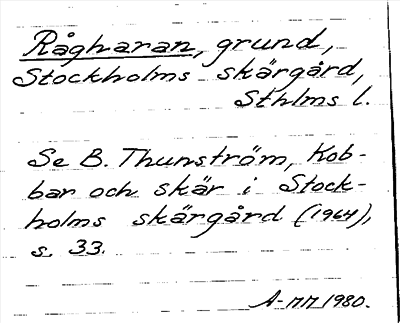 Rågharan, grund,
Stockholms skärgård,
Sthlms l.
Se B. Thunström, Kob-
bar och skär i Stock-
holms skärgård (1964),
s. 33.
A-MM 1980.